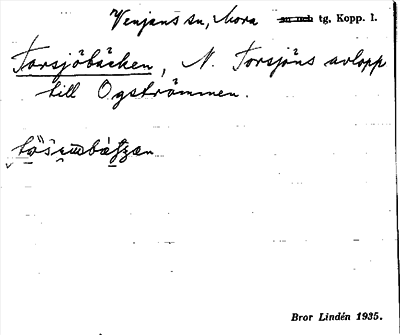 Venjans sn, Mora sn och tg. Kopp. l.
Torsjöbäcken, N. Torsjöns avlopp
till Ogströmmen.
Bror Lindén 1935.